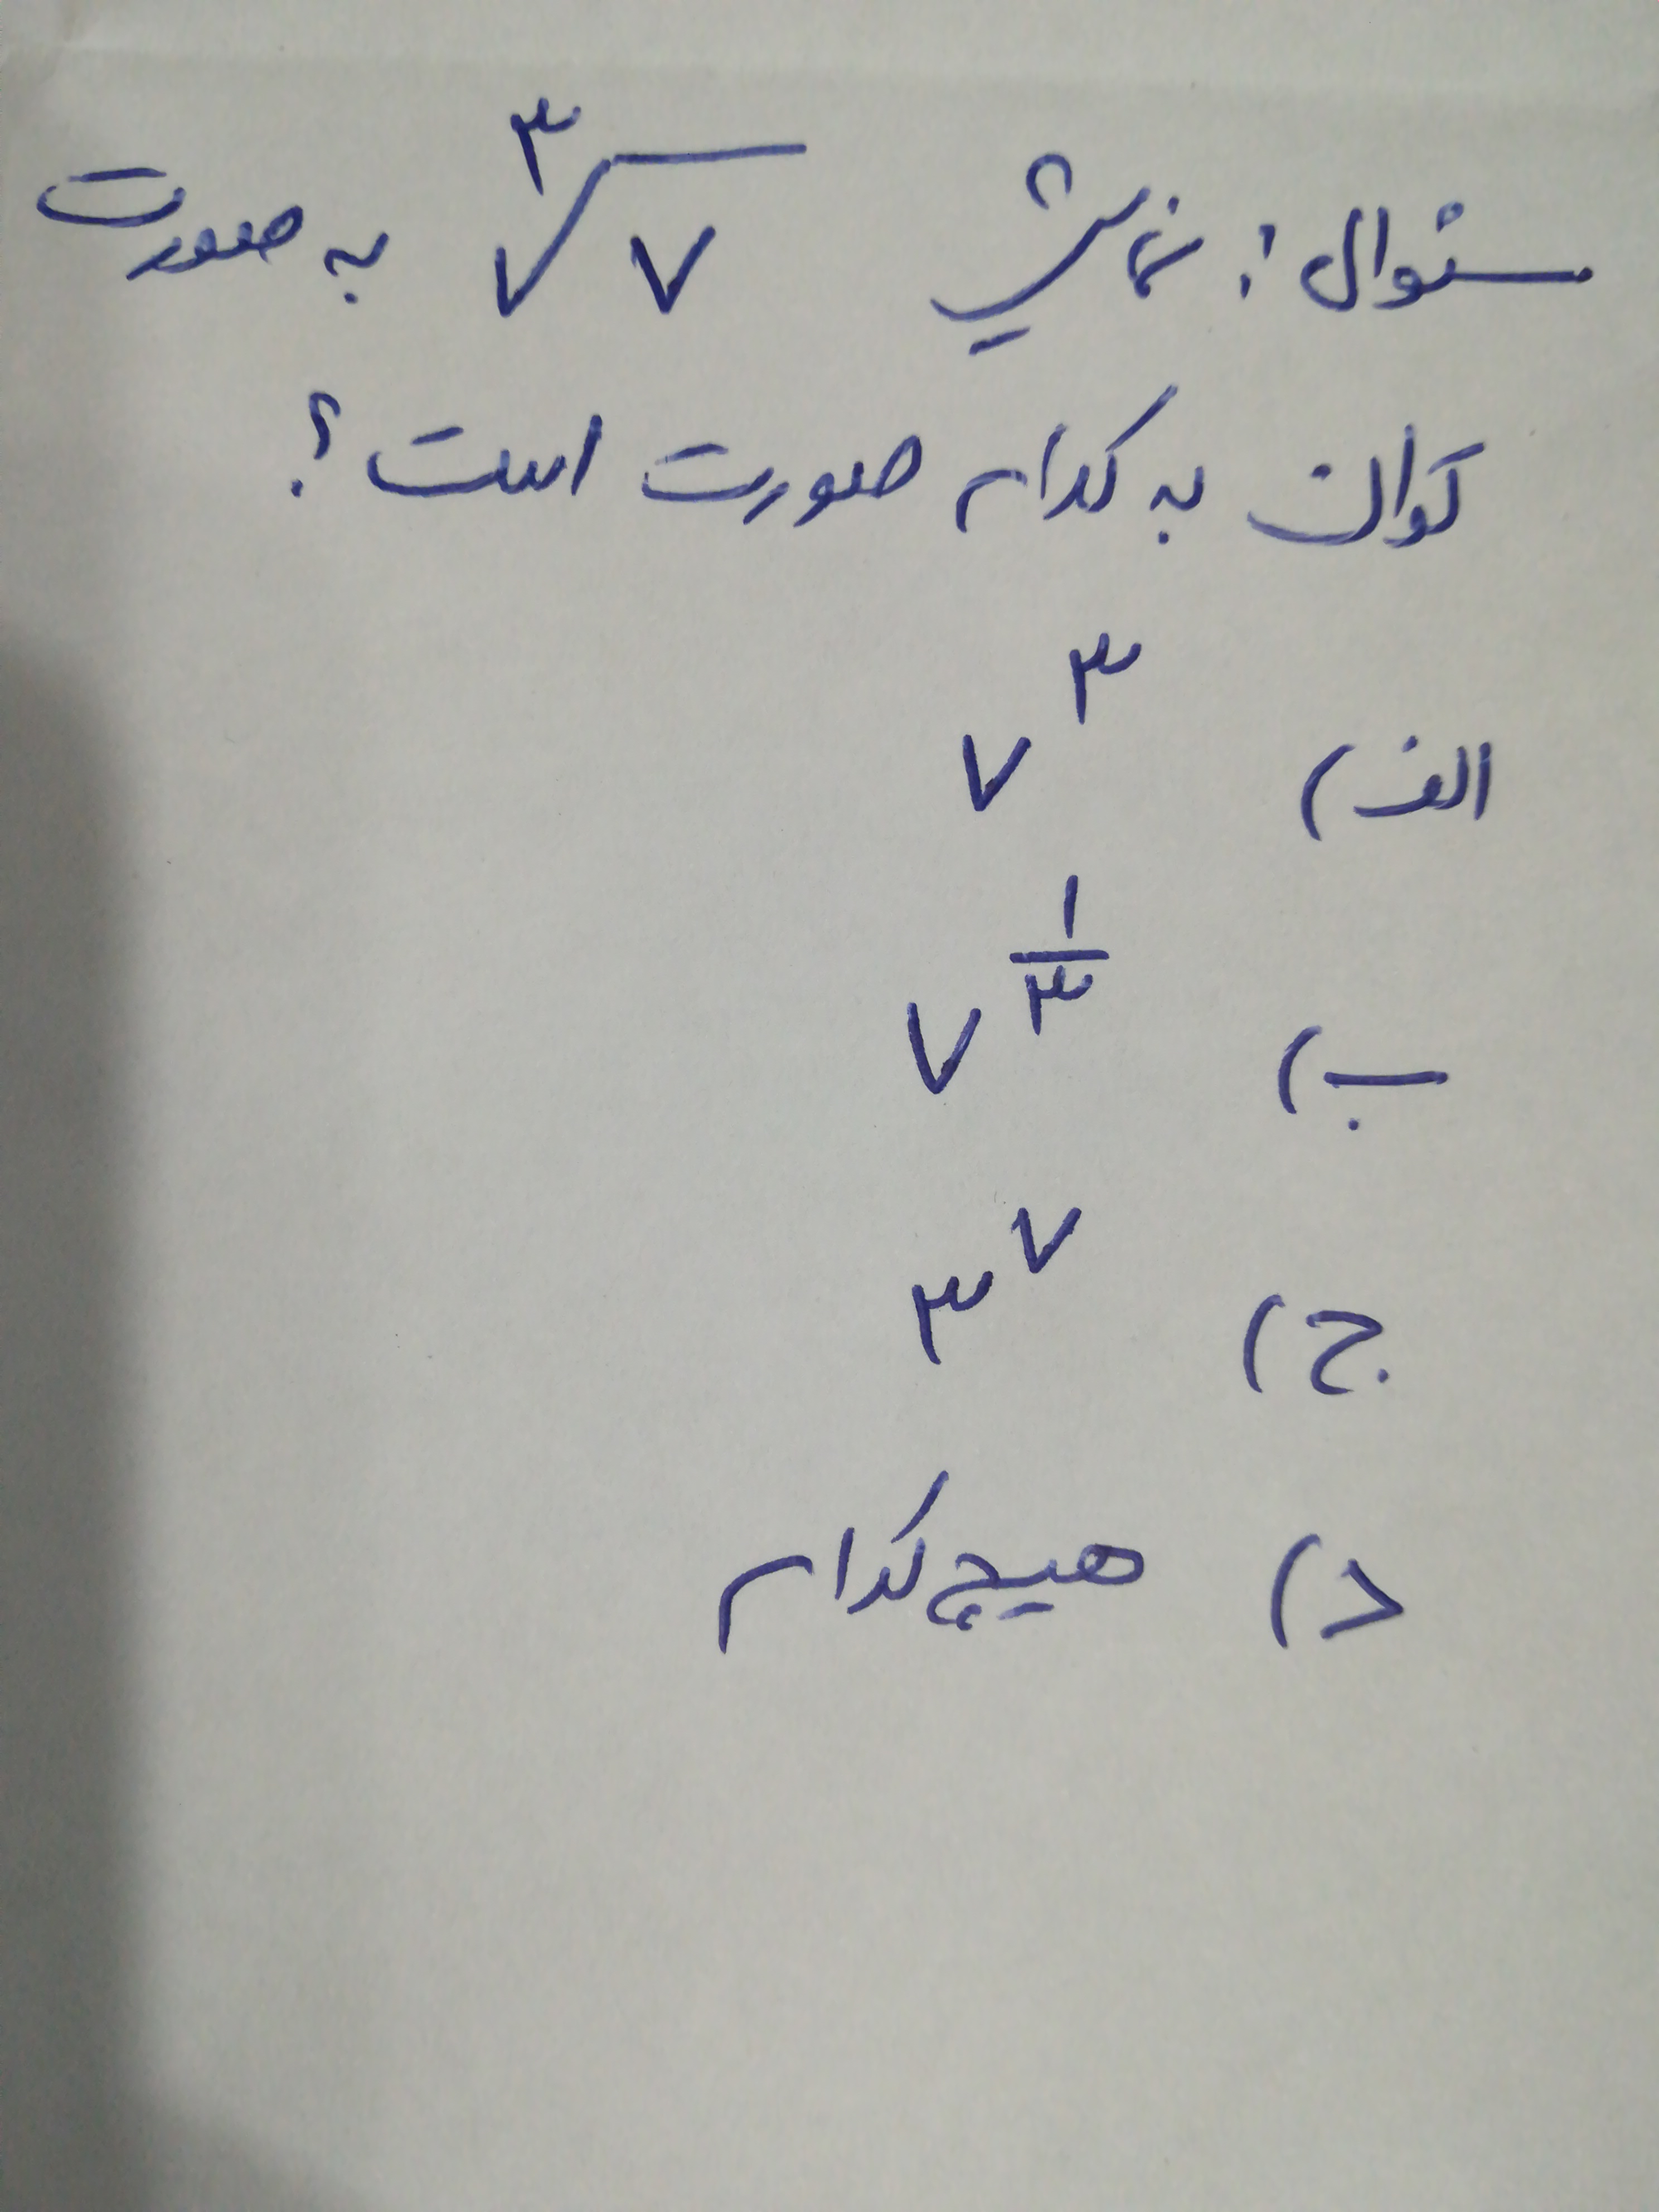 سئوال : نمایش ∛۷ به صورت
توان به کدام صورت است؟
الف) ۷^۳
ب) ۷^(۱/۳)
ج) ۳^۷
د) هیچ کدام